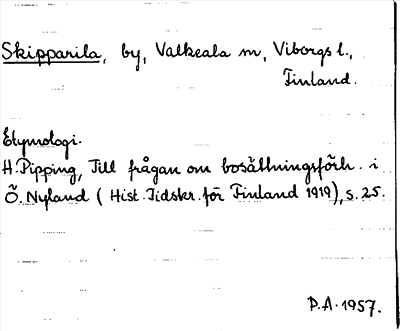 Skipparila, by, Valkeala sn, Viborgs l.,
Finland.
Etymologi.
H. Pipping, Till frågan om bosättningsförh. i
Ö. Nyland (Hist. Tidskr. för Finland 1919), s. 25.
P.A. 1957.